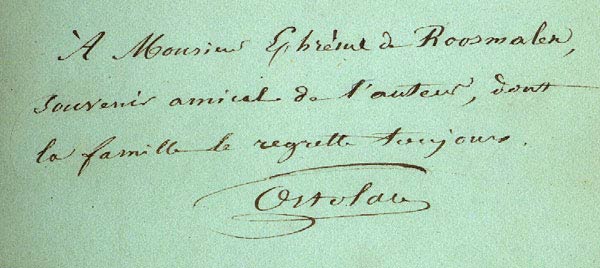 À Monsieur Ephrème de Roosmalen,
souvenir amical de l'auteur, dont
la famille le regrette toujours.
Ortolan